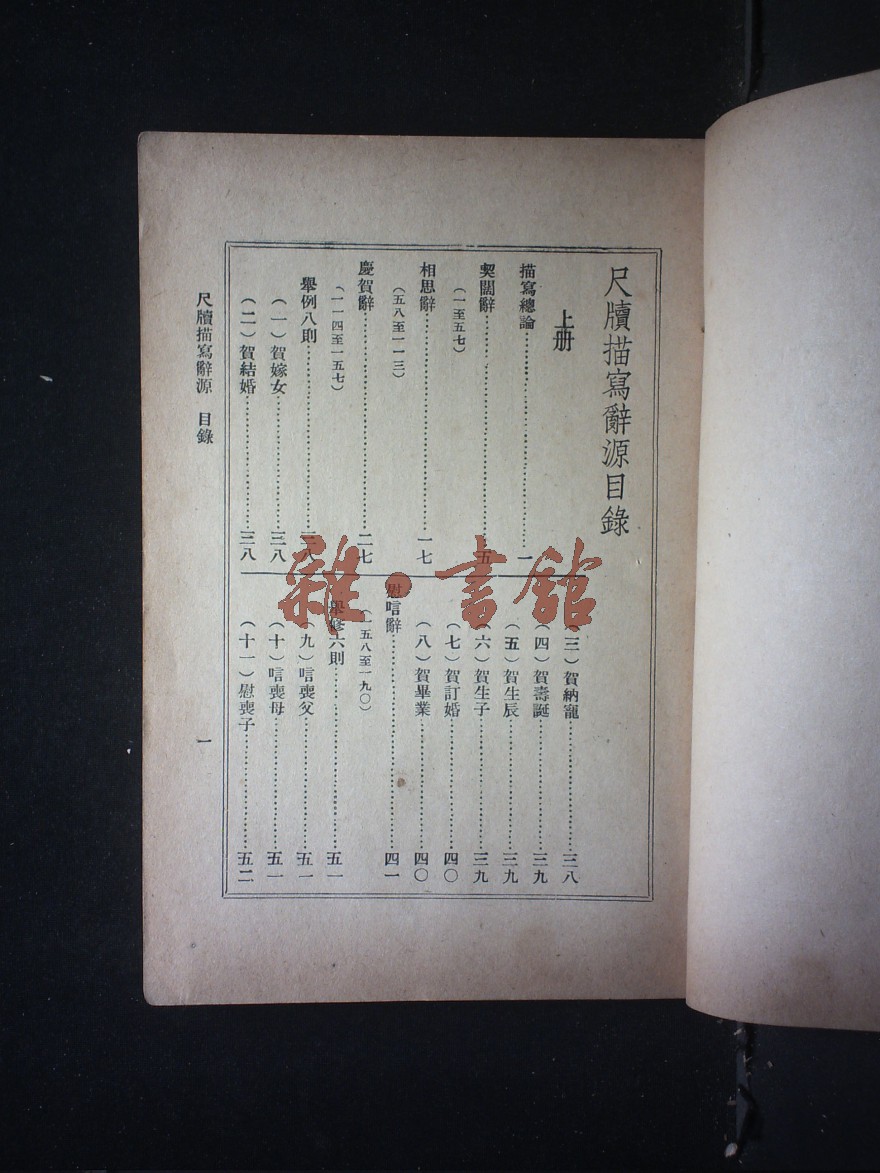 尺牘描寫辭源目錄
上册
描寫總論⋯⋯一
契闊辭⋯⋯五
(一至五七)
相思辭⋯⋯一七
(五八至一一三)
慶賀辭⋯⋯二七
(一一四至一五七)
舉例八則⋯⋯三八
(一)賀嫁女⋯⋯三八
(二)賀結婚⋯⋯三八
(三)賀納寵⋯⋯三八
(四)賀壽誕⋯⋯三九
(五)賀生辰⋯⋯三九
(六)賀生子⋯⋯三九
(七)賀訂婚⋯⋯四〇
(八)賀畢業⋯⋯四〇
慰唁辭⋯⋯四一
(一五八至一九〇)
六則⋯⋯五一
(九)唁喪父⋯⋯五一
(十)唁喪母⋯⋯五一
(十一)慰喪子⋯⋯五二
尺牘描寫辭源 目錄
一
雜·書館